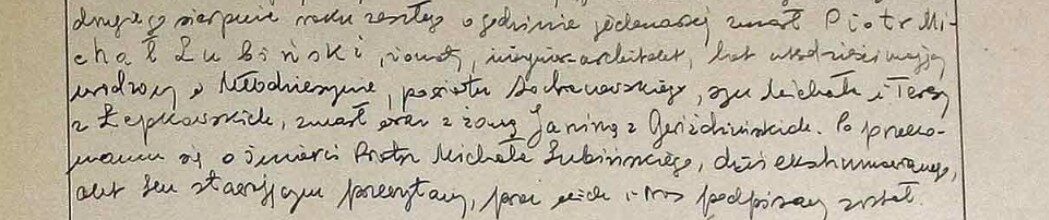 drugiego sierpnia roku zeszłego o godzinie jedenastej zmarł Piotr Mi-
chał Łubiński, żonaty, inżynier-architekt, lat mający
urodzony w Młodzieszynie, powiatu Sochaczewskiego, syn Michała i Teresy
z Łepkowskich, zmarł wraz z żoną Janiną z . Po przeko-
naniu się o śmierci Piotra Michała Łubińskiego, dziś ekshumowanego,
akt ten stawającym przeczytany, przez nich i Nas podpisany został.